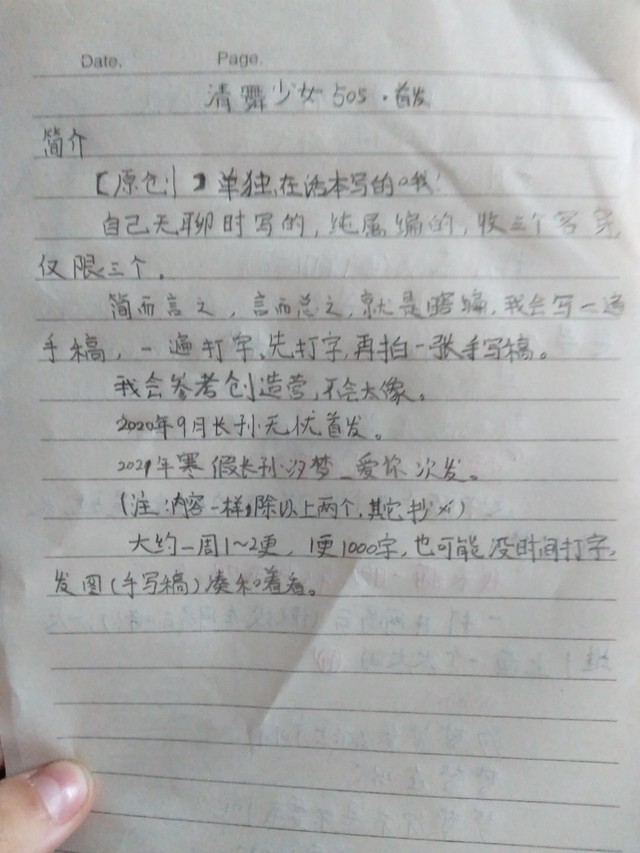 Date. Page.
清舞少女505·首发
简介
【原创】单独在话本写的哦!
自己无聊时写的,纯属编的,收三个客串
仅限三个.
简而言之,言而总之,就是瞎编,我会写一遍
手稿,一遍打字,先打字,再拍一张手写稿。
我会参考创造营,不会太像。
2020年9月长孙无忧首发。
2021年寒假长孙汐梦_爱你次发。
(注:内容一样,除以上两个,其它抄
大约一周1~2更,1更1000字,也可能没时间打字,
发图(手写稿)凑和着看。